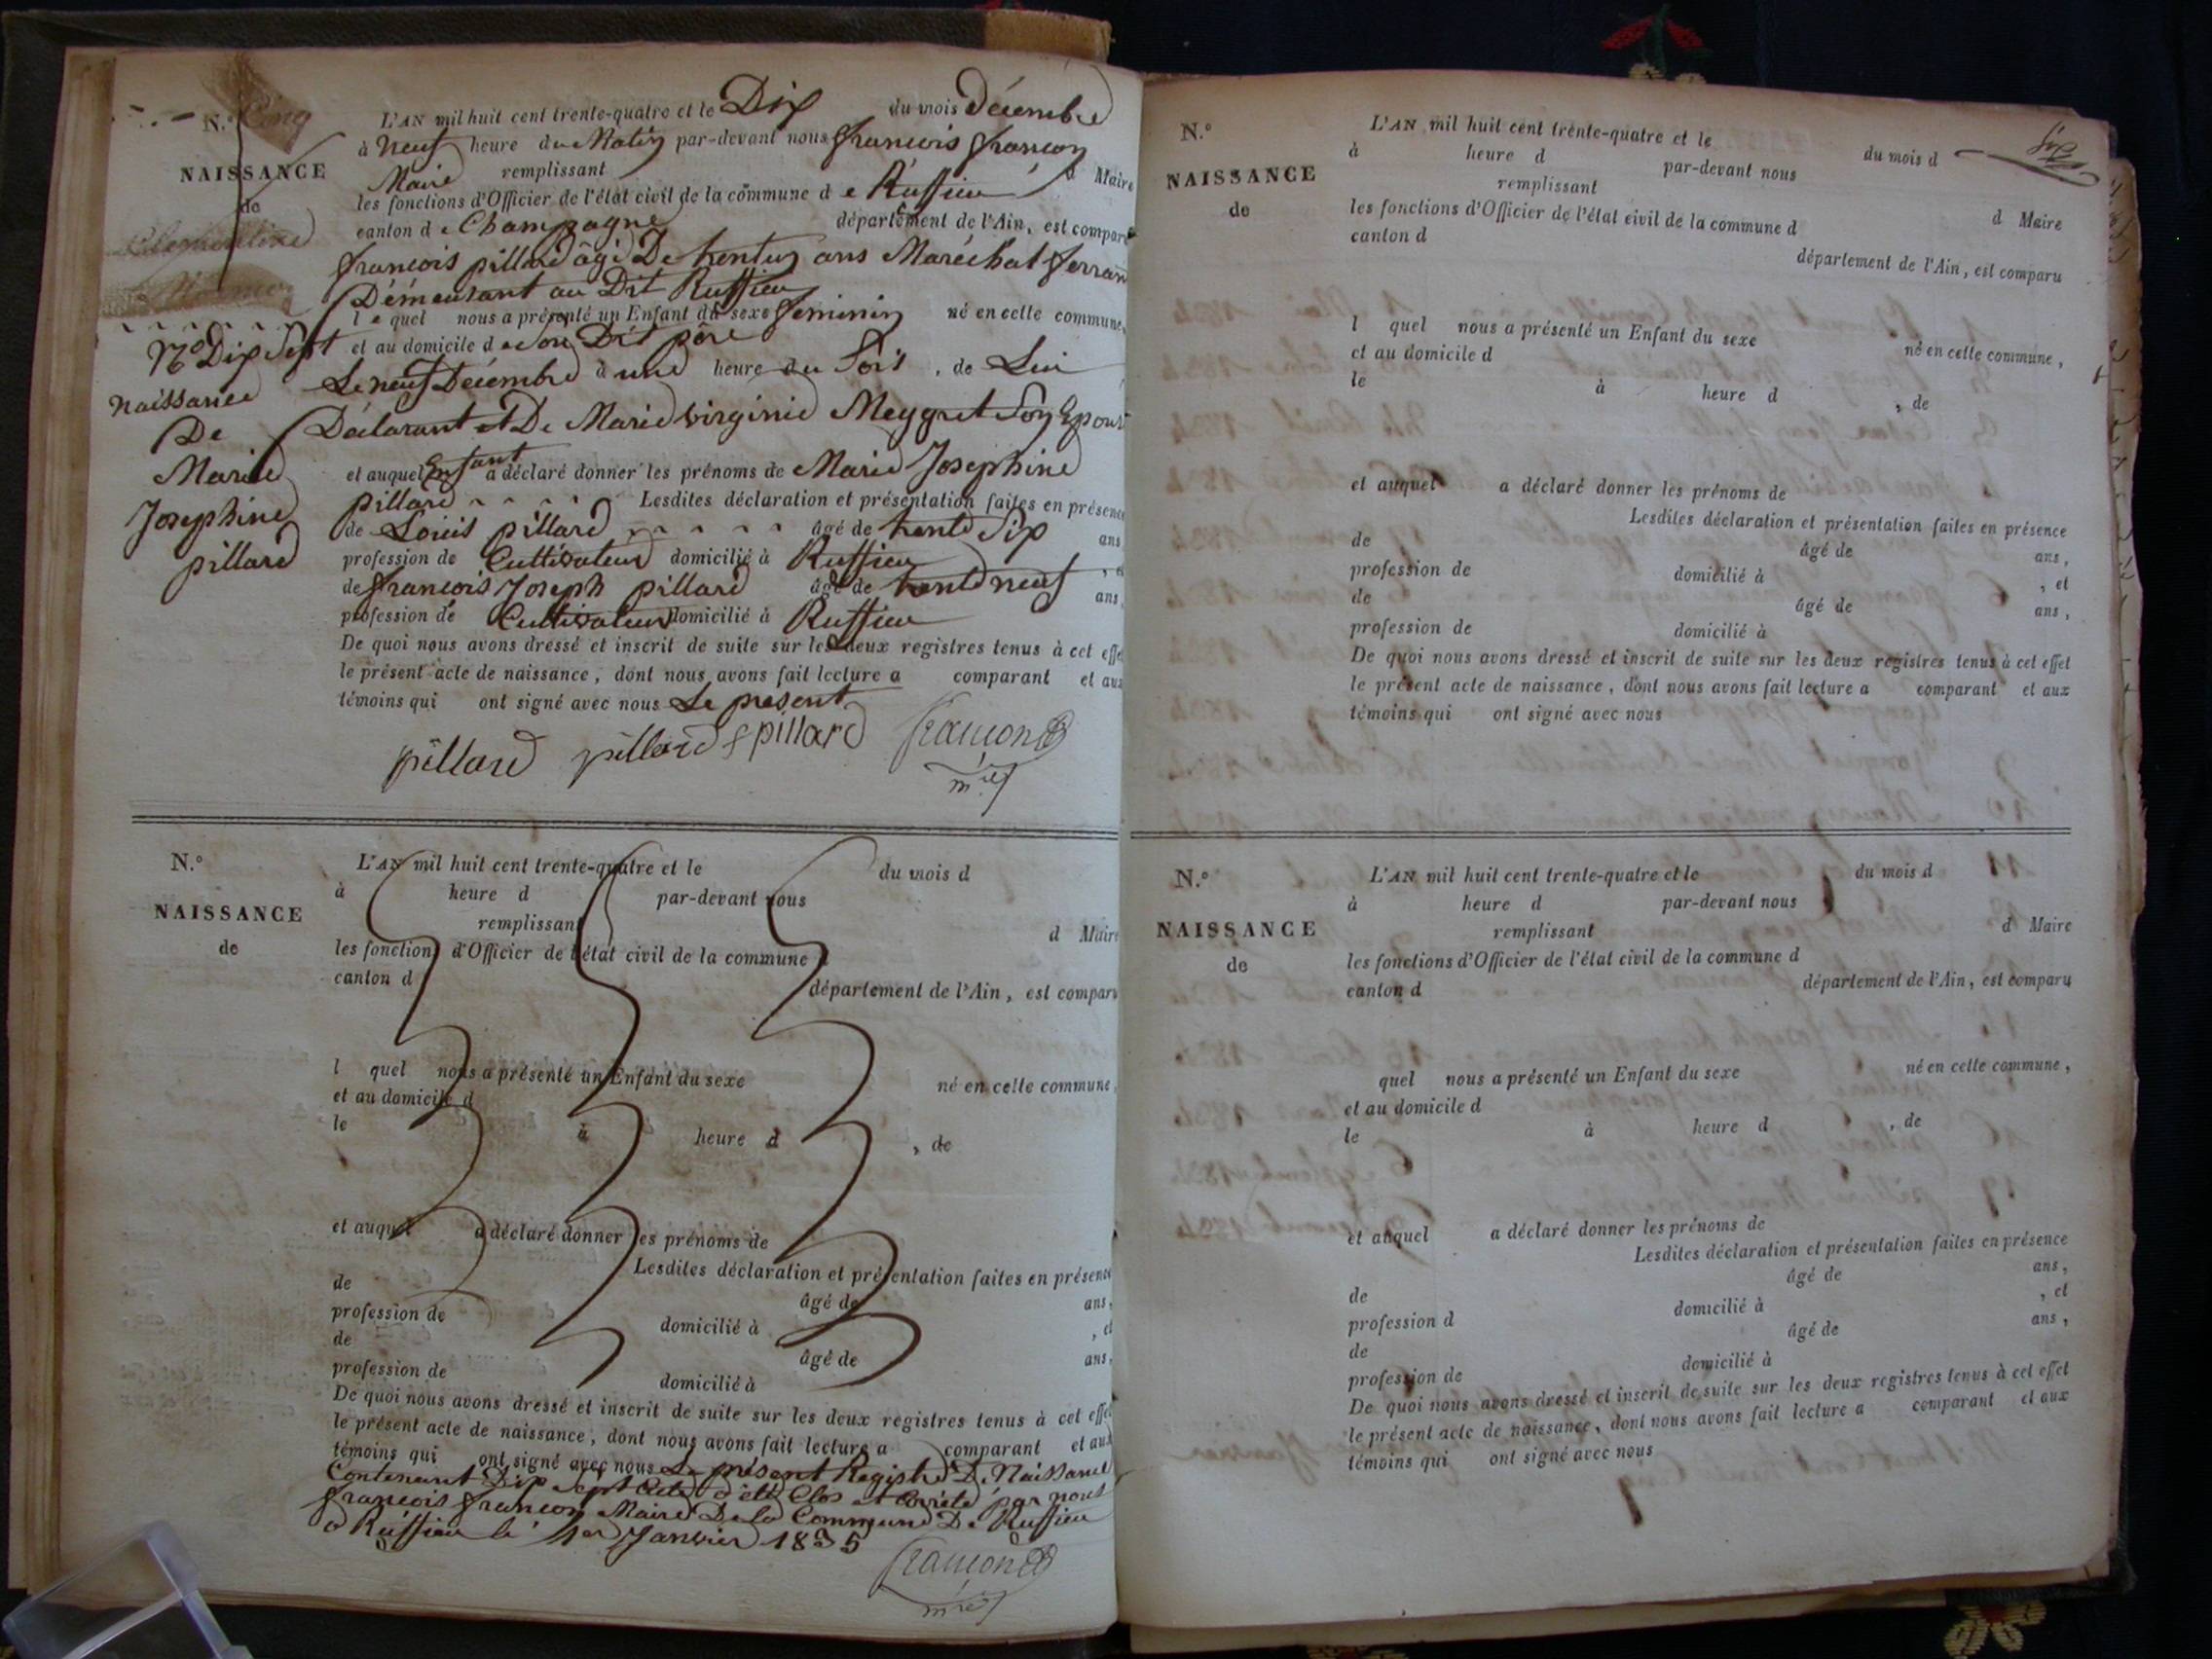 N.o Cinq
NAISSANCE
de
Clementine
No Dix Sept
naissance
De
Marie
Josephine
pillard
L'AN mil huit cent trente-quatre et le Dix du mois décembre
à neuf heure du Matin par-devant nous françois françon
Maire remplissant d Maire
les fonctions d'Officier de l'état civil de la commune de Ruffieu
canton de Champagne département de l'Ain, est comparu
françois pillard âgé De trente un ans Maréchal ferrant
Demeurant au Dit Ruffieu
le quel nous a présenté un Enfant du sexe feminin né en celle commune,
et au domicile de son Dit père
Le neuf Décembre à une heure du Soir, de Lui
Déclarant et De Marie virginie Meygret Son Epouse
et auquel Enfant a déclaré donner les prénoms de Marie Josephine
pillard Lesdites déclaration et présentation faites en présence
de Louis pillard âgé de trente Six ans
profession de Cultivateur domicilié à Ruffieu, et
de françois Joseph pillard âgé de trente neuf ans,
profession de Cultivateur domicilié à Ruffieu
De quoi nous avons dressé et inscrit de suite sur les deux registres tenus à cet effet
le présent acte de naissance, dont nous avons fait lecture a comparant et aux
témoins qui ont signé avec nous Le présent
pillard pillard pillard françon
mre
N.o
NAISSANCE
de
L'AN mil huit cent trente-quatre et le du mois d
à heure d par-devant nous
remplissant d Maire
les fonctions d'Officier de l'état civil de la commune d
canton d département de l'Ain, est comparu
l quel nous a présenté un Enfant du sexe né en celle commune,
et au domicile d
le à heure d , de
et auquel a déclaré donner les prénoms de
Lesdites déclaration et présentation faites en présence
de âgé de ans,
profession de domicilié à , et
de âgé de ans,
profession de domicilié à
De quoi nous avons dressé et inscrit de suite sur les deux registres tenus à cet effet
le présent acte de naissance, dont nous avons fait lecture a comparant et aux
témoins qui ont signé avec nous Le présent Registre De Naissance
Contenant Dix Sept acte a été Clos et arrêté par nous
françois françon Maire De la Commune De Ruffieu
a Ruffieu le 1er Janvier 1835
françon
mre
N.o
NAISSANCE
de
L'AN mil huit cent trente-quatre et le du mois d
à heure d par-devant nous
remplissant d Maire
les fonctions d'Officier de l'état civil de la commune d
canton d département de l'Ain, est comparu
l quel nous a présenté un Enfant du sexe né en celle commune,
et au domicile d
le à heure d , de
et auquel a déclaré donner les prénoms de
Lesdites déclaration et présentation faites en présence
de âgé de ans,
profession de domicilié à , et
de âgé de ans,
profession de domicilié à
De quoi nous avons dressé et inscrit de suite sur les deux registres tenus à cet effet
le présent acte de naissance, dont nous avons fait lecture a comparant et aux
témoins qui ont signé avec nous
N.o
NAISSANCE
de
L'AN mil huit cent trente-quatre et le du mois d
à heure d par-devant nous
remplissant d Maire
les fonctions d'Officier de l'état civil de la commune d
canton d département de l'Ain, est comparu
quel nous a présenté un Enfant du sexe né en celle commune,
et au domicile d
le à heure d , de
et auquel a déclaré donner les prénoms de
Lesdites déclaration et présentation faites en présence
de âgé de ans,
profession d domicilié à , et
de âgé de ans,
profession de domicilié à
De quoi nous avons dressé et inscrit de suite sur les deux registres tenus à cet effet
le présent acte de naissance, dont nous avons fait lecture a comparant et aux
témoins qui ont signé avec nous